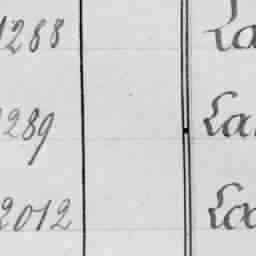 1288 La
1289 La
2012 La